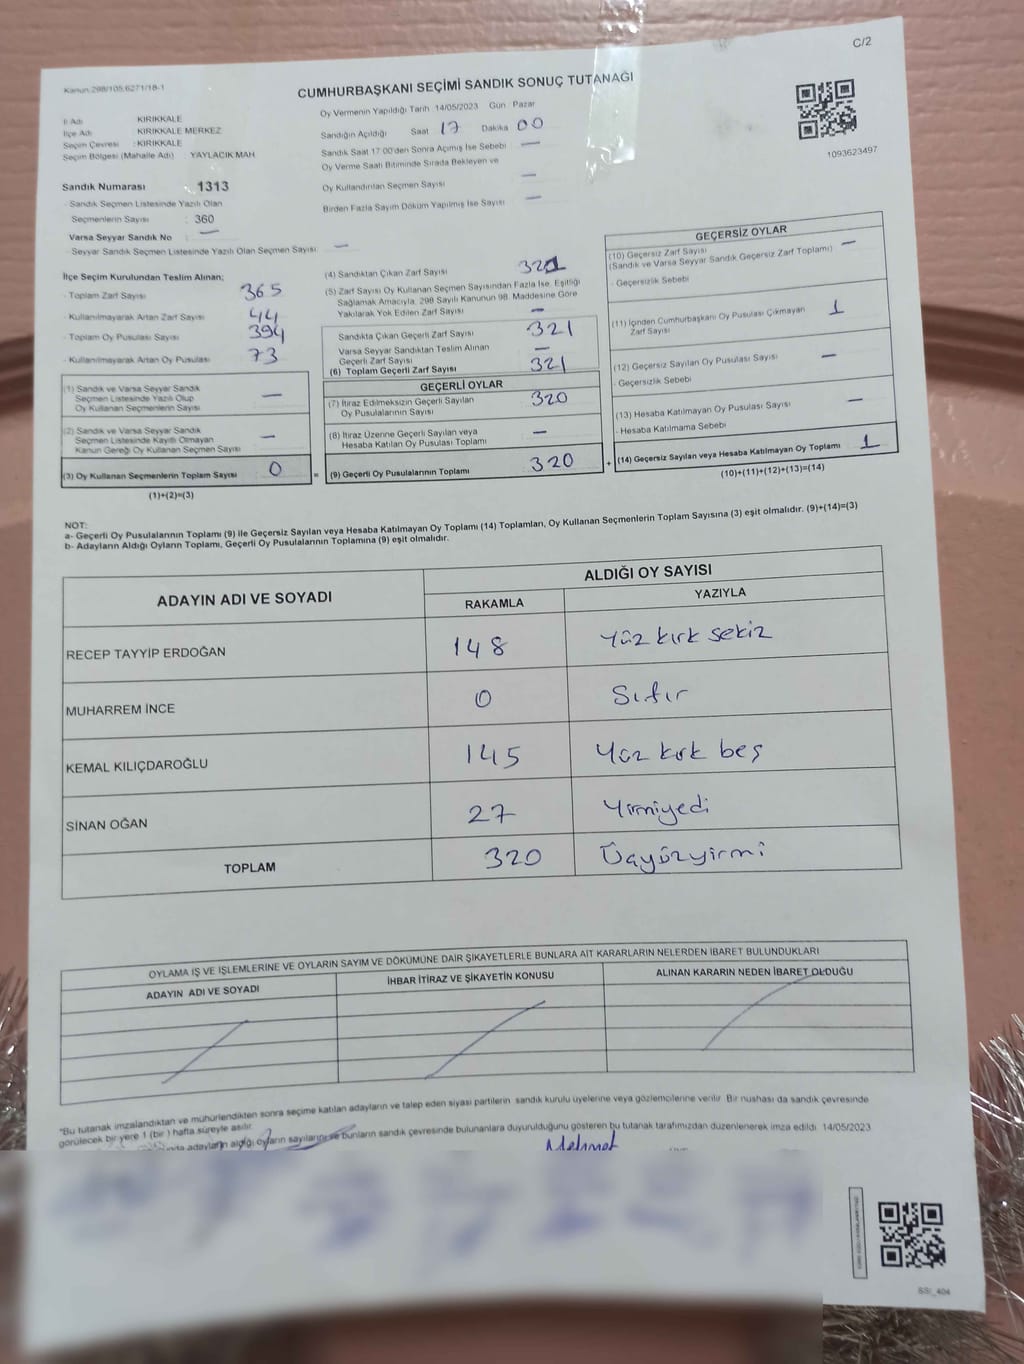 C/2
Kanun:298/105;6271/18-1
CUMHURBAŞKANI SEÇİMİ SANDIK SONUÇ TUTANAĞI
İl Adı KIRIKKALE
İlçe Adı KIRIKKALE MERKEZ
Seçim Çevresi : KIRIKKALE
Seçim Bölgesi (Mahalle Adı) YAYLACIK MAH
Oy Vermenin Yapıldığı Tarih 14/05/2023 Gün Pazar
Sandığın Açıldığı Saat 17 Dakika 00
Sandık Saat 17:00'den Sonra Açımış İse Sebebi —
Oy Verme Saati Bitiminde Sırada Bekleyen ve
Oy Kullandırılan Seçmen Sayısı —
Birden Fazla Sayım Döküm Yapılmış İse Sayısı —
1093623497
Sandık Numarası : 1313
- Sandık Seçmen Listesinde Yazılı Olan
Seçmenlerin Sayısı : 360
Varsa Seyyar Sandık No : —
- Seyyar Sandık Seçmen Listesinde Yazılı Olan Seçmen Sayısı: —
İlçe Seçim Kurulundan Teslim Alınan;
- Toplam Zarf Sayısı : 365
- Kullanılmayarak Artan Zarf Sayısı : 44
- Toplam Oy Pusulası Sayısı : 394
- Kullanılmayarak Artan Oy Pusulası : 73
(1) Sandık ve Varsa Seyyar Sandık
Seçmen Listesinde Yazılı Olup
Oy Kullanan Seçmenlerin Sayısı : —
(2) Sandık ve Varsa Seyyar Sandık
Seçmen Listesinde Kayıtlı Olmayan
Kanun Gereği Oy Kullanan Seçmen Sayısı : —
(3) Oy Kullanan Seçmenlerin Toplam Sayısı : 0 =
(1)+(2)=(3)
(4) Sandıktan Çıkan Zarf Sayısı : 321
(5) Zarf Sayısı Oy Kullanan Seçmen Sayısından Fazla İse, Eşitliği
Sağlamak Amacıyla, 298 Sayılı Kanunun 98. Maddesine Göre
Yakılarak Yok Edilen Zarf Sayısı : —
Sandıkta Çıkan Geçerli Zarf Sayısı : 321
Varsa Seyyar Sandıktan Teslim Alınan
Geçerli Zarf Sayısı : —
(6) Toplam Geçerli Zarf Sayısı : 321
GEÇERLİ OYLAR
(7) İtiraz Edilmeksizin Geçerli Sayılan
Oy Pusulalarının Sayısı : 320
(8) İtiraz Üzerine Geçerli Sayılan veya
Hesaba Katılan Oy Pusulası Toplamı : —
(9) Geçerli Oy Pusulalarının Toplamı : 320 +
GEÇERSİZ OYLAR
(10) Geçersiz Zarf Sayısı
(Sandık ve Varsa Seyyar Sandık Geçersiz Zarf Toplamı) : —
- Geçersizlik Sebebi
(11) İçinden Cumhurbaşkanı Oy Pusulası Çıkmayan
Zarf Sayısı : 1
(12) Geçersiz Sayılan Oy Pusulası Sayısı : —
- Geçersizlik Sebebi
(13) Hesaba Katılmayan Oy Pusulası Sayısı : —
- Hesaba Katılmama Sebebi
(14) Geçersiz Sayılan veya Hesaba Katılmayan Oy Toplamı : 1
(10)+(11)+(12)+(13)=(14)
NOT:
a- Geçerli Oy Pusulalarının Toplamı (9) ile Geçersiz Sayılan veya Hesaba Katılmayan Oy Toplamı (14) Toplamları, Oy Kullanan Seçmenlerin Toplam Sayısına (3) eşit olmalıdır. (9)+(14)=(3)
b- Adayların Aldığı Oyların Toplamı, Geçerli Oy Pusulalarının Toplamına (9) eşit olmalıdır.
ADAYIN ADI VE SOYADI ALDIĞI OY SAYISI
RAKAMLA YAZIYLA
RECEP TAYYİP ERDOĞAN 148 Yüz kırk sekiz
MUHARREM İNCE 0 Sıfır
KEMAL KILIÇDAROĞLU 145 Yüz kırk beş
SİNAN OĞAN 27 Yirmiyedi
TOPLAM 320 Üçyüzyirmi
OYLAMA İŞ VE İŞLEMLERİNE VE OYLARIN SAYIM VE DÖKÜMÜNE DAİR ŞİKAYETLERLE BUNLARA AİT KARARLARIN NELERDEN İBARET BULUNDUKLARI
ADAYIN ADI VE SOYADI İHBAR İTİRAZ VE ŞİKAYETİN KONUSU ALINAN KARARIN NEDEN İBARET OLDUĞU
"Bu tutanak imzalandıktan ve mühürlendikten sonra seçime katılan adayların ve talep eden siyasi partilerin sandık kurulu üyelerine veya gözlemcilerine verilir. Bir nüshası da sandık çevresinde
görülecek bir yere 1 (bir) hafta süreyle asılır.
adayların aldığı oyların sayılarını ve bunların sandık çevresinde bulunanlara duyurulduğunu gösteren bu tutanak tarafımızdan düzenlenerek imza edildi. 14/05/2023
Mehmet
SSİ_404